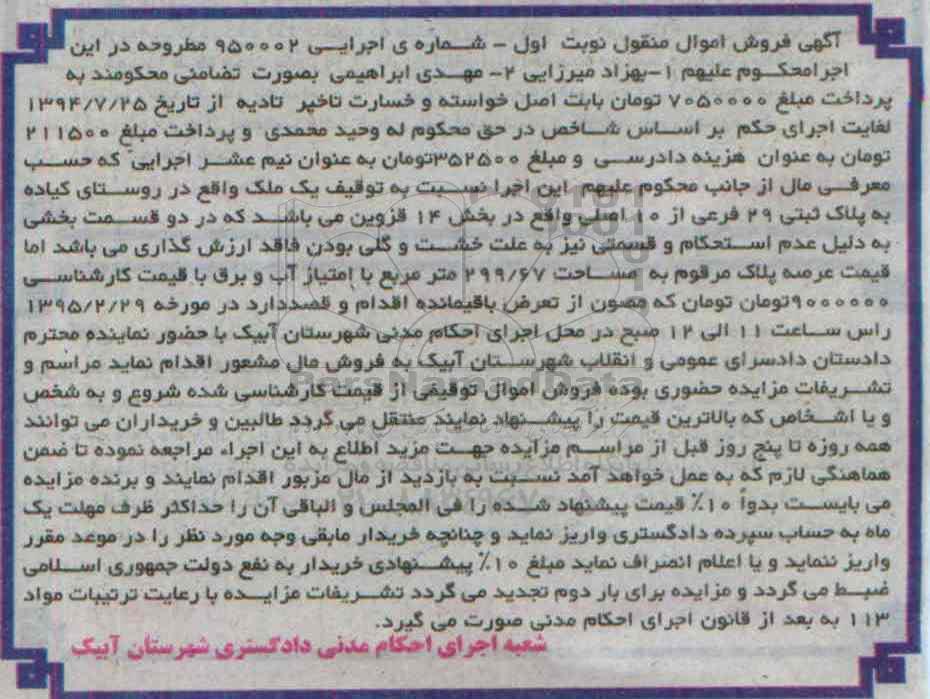 آگهی فروش اموال منقول نوبت اول - شماره ی اجرایی ۹۵۰۰۰۲ مطروحه در این
اجرامحکوم علیهم ۱-بهزاد میرزایی ۲- مهدی ابراهیمی بصورت تضامنی محکومند به
پرداخت مبلغ ۷۰۵۰۰۰۰ تومان بابت اصل خواسته و خسارت تاخیر تادیه از تاریخ ۱۳۹۴/۷/۲۵
لغایت اجرای حکم بر اساس شاخص در حق محکوم له وحید محمدی و پرداخت مبلغ ۲۱۱۵۰۰
تومان به عنوان هزینه دادرسی و مبلغ ۳۵۲۵۰۰تومان به عنوان نیم عشر اجرایی که حسب
معرفی مال از جانب محکوم علیهم این اجرا نسبت به توقیف یک ملک واقع در روستای کیاده
به پلاک ثبتی ۲۹ فرعی از ۱۰ اصلی واقع در بخش ۱۴ قزوین می باشد که در دو قسمت بخشی
به دلیل عدم استحکام و قسمتی نیز به علت خشت و گلی بودن فاقد ارزش گذاری می باشد اما
قیمت عرصه پلاک مرقوم به مساحت ۲۹۹/۶۷ متر مربع با امتیاز آب و برق با قیمت کارشناسی
۹۰۰۰۰۰۰تومان تومان که مصون از تعرض باقیمانده اقدام و قصددارد در مورخه ۱۳۹۵/۲/۲۹
راس ساعت ۱۱ الی ۱۲ صبح در محل اجرای احکام مدنی شهرستان آبیک با حضور نماینده محترم
دادستان دادسرای عمومی و انقلاب شهرستان آبیک به فروش مال مشعور اقدام نماید مراسم و
تشریفات مزایده حضوری بوده فروش اموال توقیفی از قیمت کارشناسی شده شروع و به شخص
و یا اشخاص که بالاترین قیمت را پیشنهاد نمایند منتقل می گردد طالبین و خریداران می توانند
همه روزه تا پنج روز قبل از مراسم مزایده جهت مزید اطلاع به این اجراء مراجعه نموده تا ضمن
هماهنگی لازم که به عمل خواهد آمد نسبت به بازدید از مال مزبور اقدام نمایند و برنده مزایده
می بایست بدواً ۱۰٪ قیمت پیشنهاد شده را فی المجلس و الباقی آن را حداکثر ظرف مهلت یک
ماه به حساب سپرده دادگستری واریز نماید و چنانچه خریدار مابقی وجه مورد نظر را در موعد مقرر
واریز ننماید و یا اعلام انصراف نماید مبلغ ۱۰٪ پیشنهادی خریدار به نفع دولت جمهوری اسلامی
ضبط می گردد و مزایده برای بار دوم تجدید می گردد تشریفات مزایده با رعایت ترتیبات مواد
۱۱۳ به بعد از قانون اجرای احکام مدنی صورت می گیرد.
شعبه اجرای احکام مدنی دادگستری شهرستان آبیک